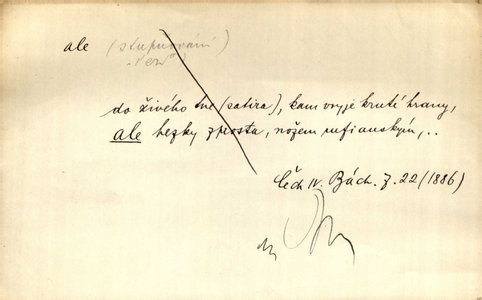 ale (stupňování)
do živého tne (satira), kam vryje kruté hrany,
ale hezky zprosta, nožem rufianským, ..
Čech IV. Bách. Z. 22 (1886)